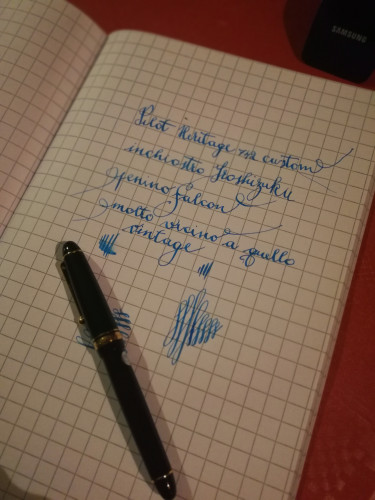 SAMSUNG
Pilot Heritage custom
inchiostro Iroshizuku
pennino falcon
molto vicino a quello
vintage